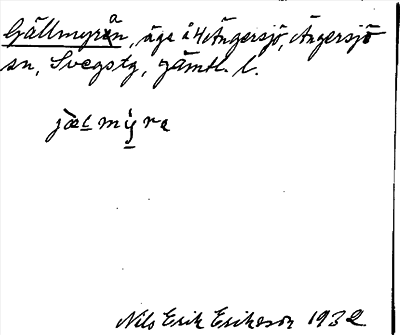 Gällmyran, äga å 4 Ängersjö, Ängersjö
sn, Svegstg, Jämtl. l.
jæ̀lmýra
Nils Erik Erikson 1932